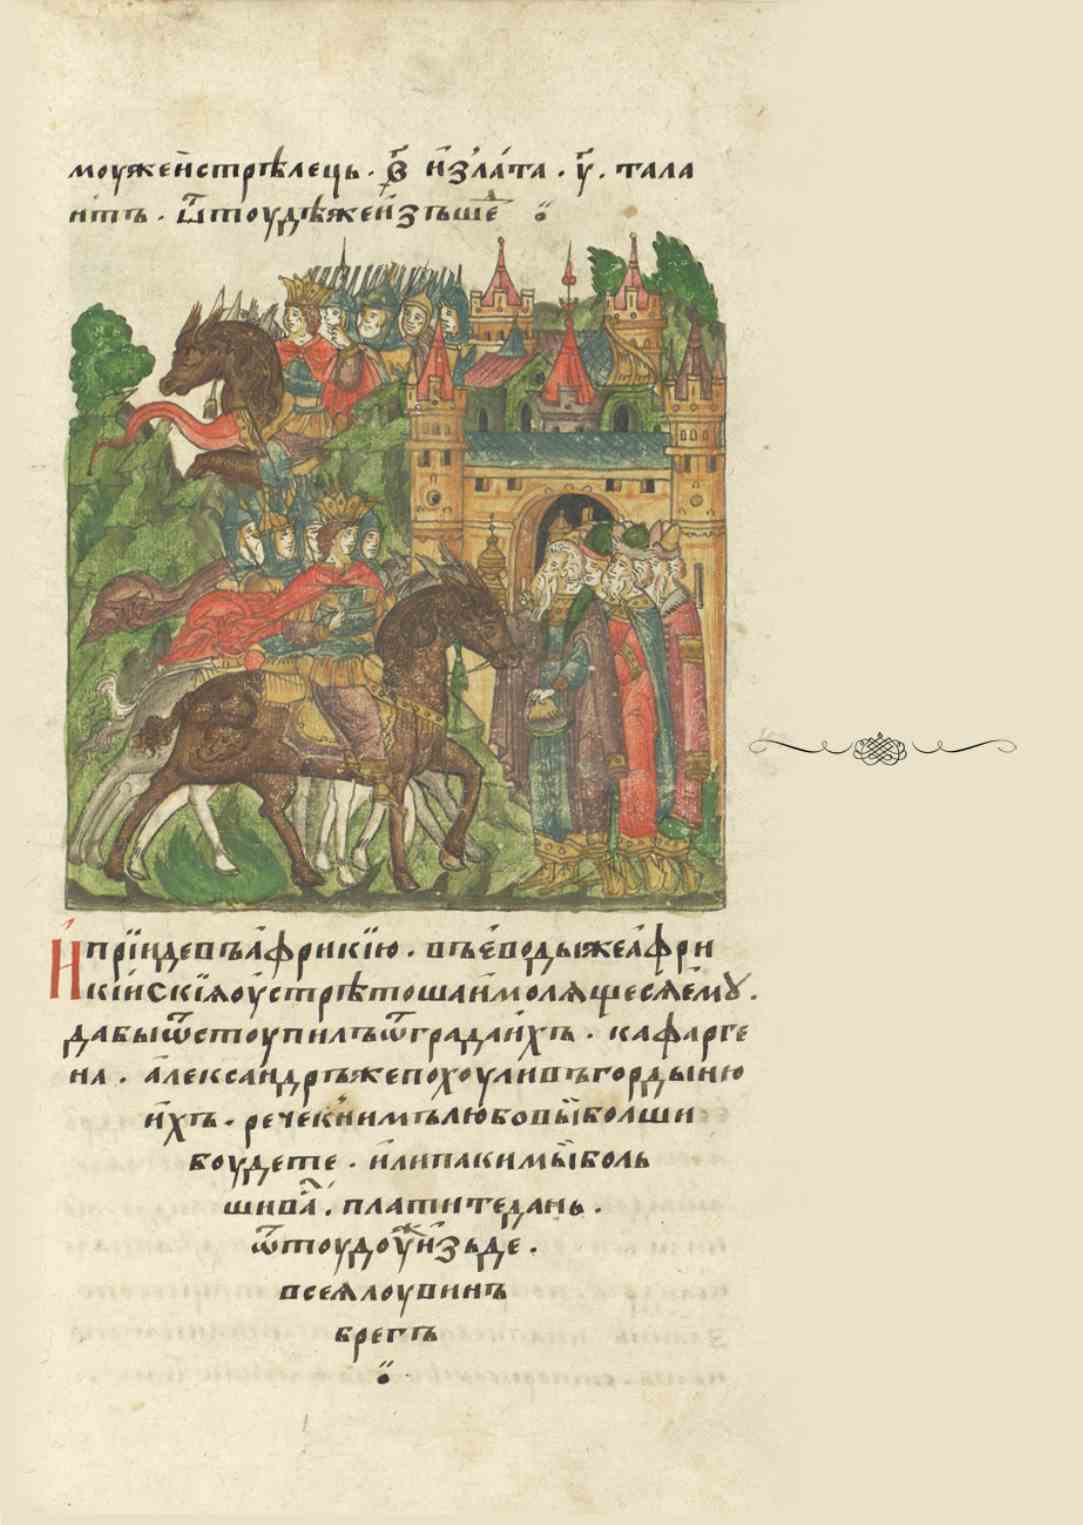 моужеи҆стрѣлець · ҂в҃ и҆зла́та · у҃ · тала
нтъ · ѿтоудѣжеи҆зъше
И҆прїидевъа҆фрикїю · въе҆водыжеа҆фри
кі́искїѧоу҆стрѣтошаи҆молѧщесѧе҆мꙋ ·
дабыѿстоупилъѿградаи҆хъ · кафарге
на · а҆леѯандръжепохоуливъгордыню
и҆хъ · речекнимълюбовы̏болши
боудете · и҆липакимы̏боль
шива · платитедань ·
ѿтоудоу҆жи҆зьде ·
всеѧлоувинъ
брегъ